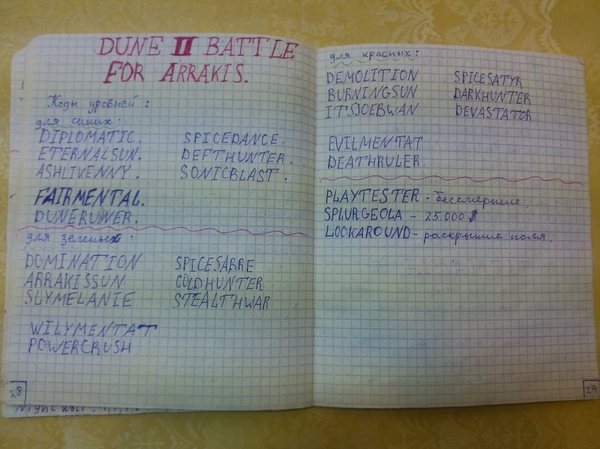 DUNE II BATTLE
FOR ARRAKIS.
Коды уровней :
для синих :
DIPLOMATIC. SPICEDANCE.
ETERNALSUN. DEFTHUNTER.
ASHLIVENNY. SONICBLAST.
FAIRMENTAL.
DUNERUNNER.
для зеленых :
DOMINATION SPICESABRE
ARRAKISSUN COLDHUNTER
SLYMELANIE STEALTHWAR
WILYMENTAT
POWERCRUSH
28
для красных :
DEMOLITION SPICESATYR
BURNINGSUN DARKHUNTER
IT'SJOEBWAN DEVASTATOR
EVILMENTAT
DEATHRULER.
PLAYTESTER - бессмертие.
SPLURGEOLA - 25.000 $
LOOKAROUND - раскрытие поля.
29